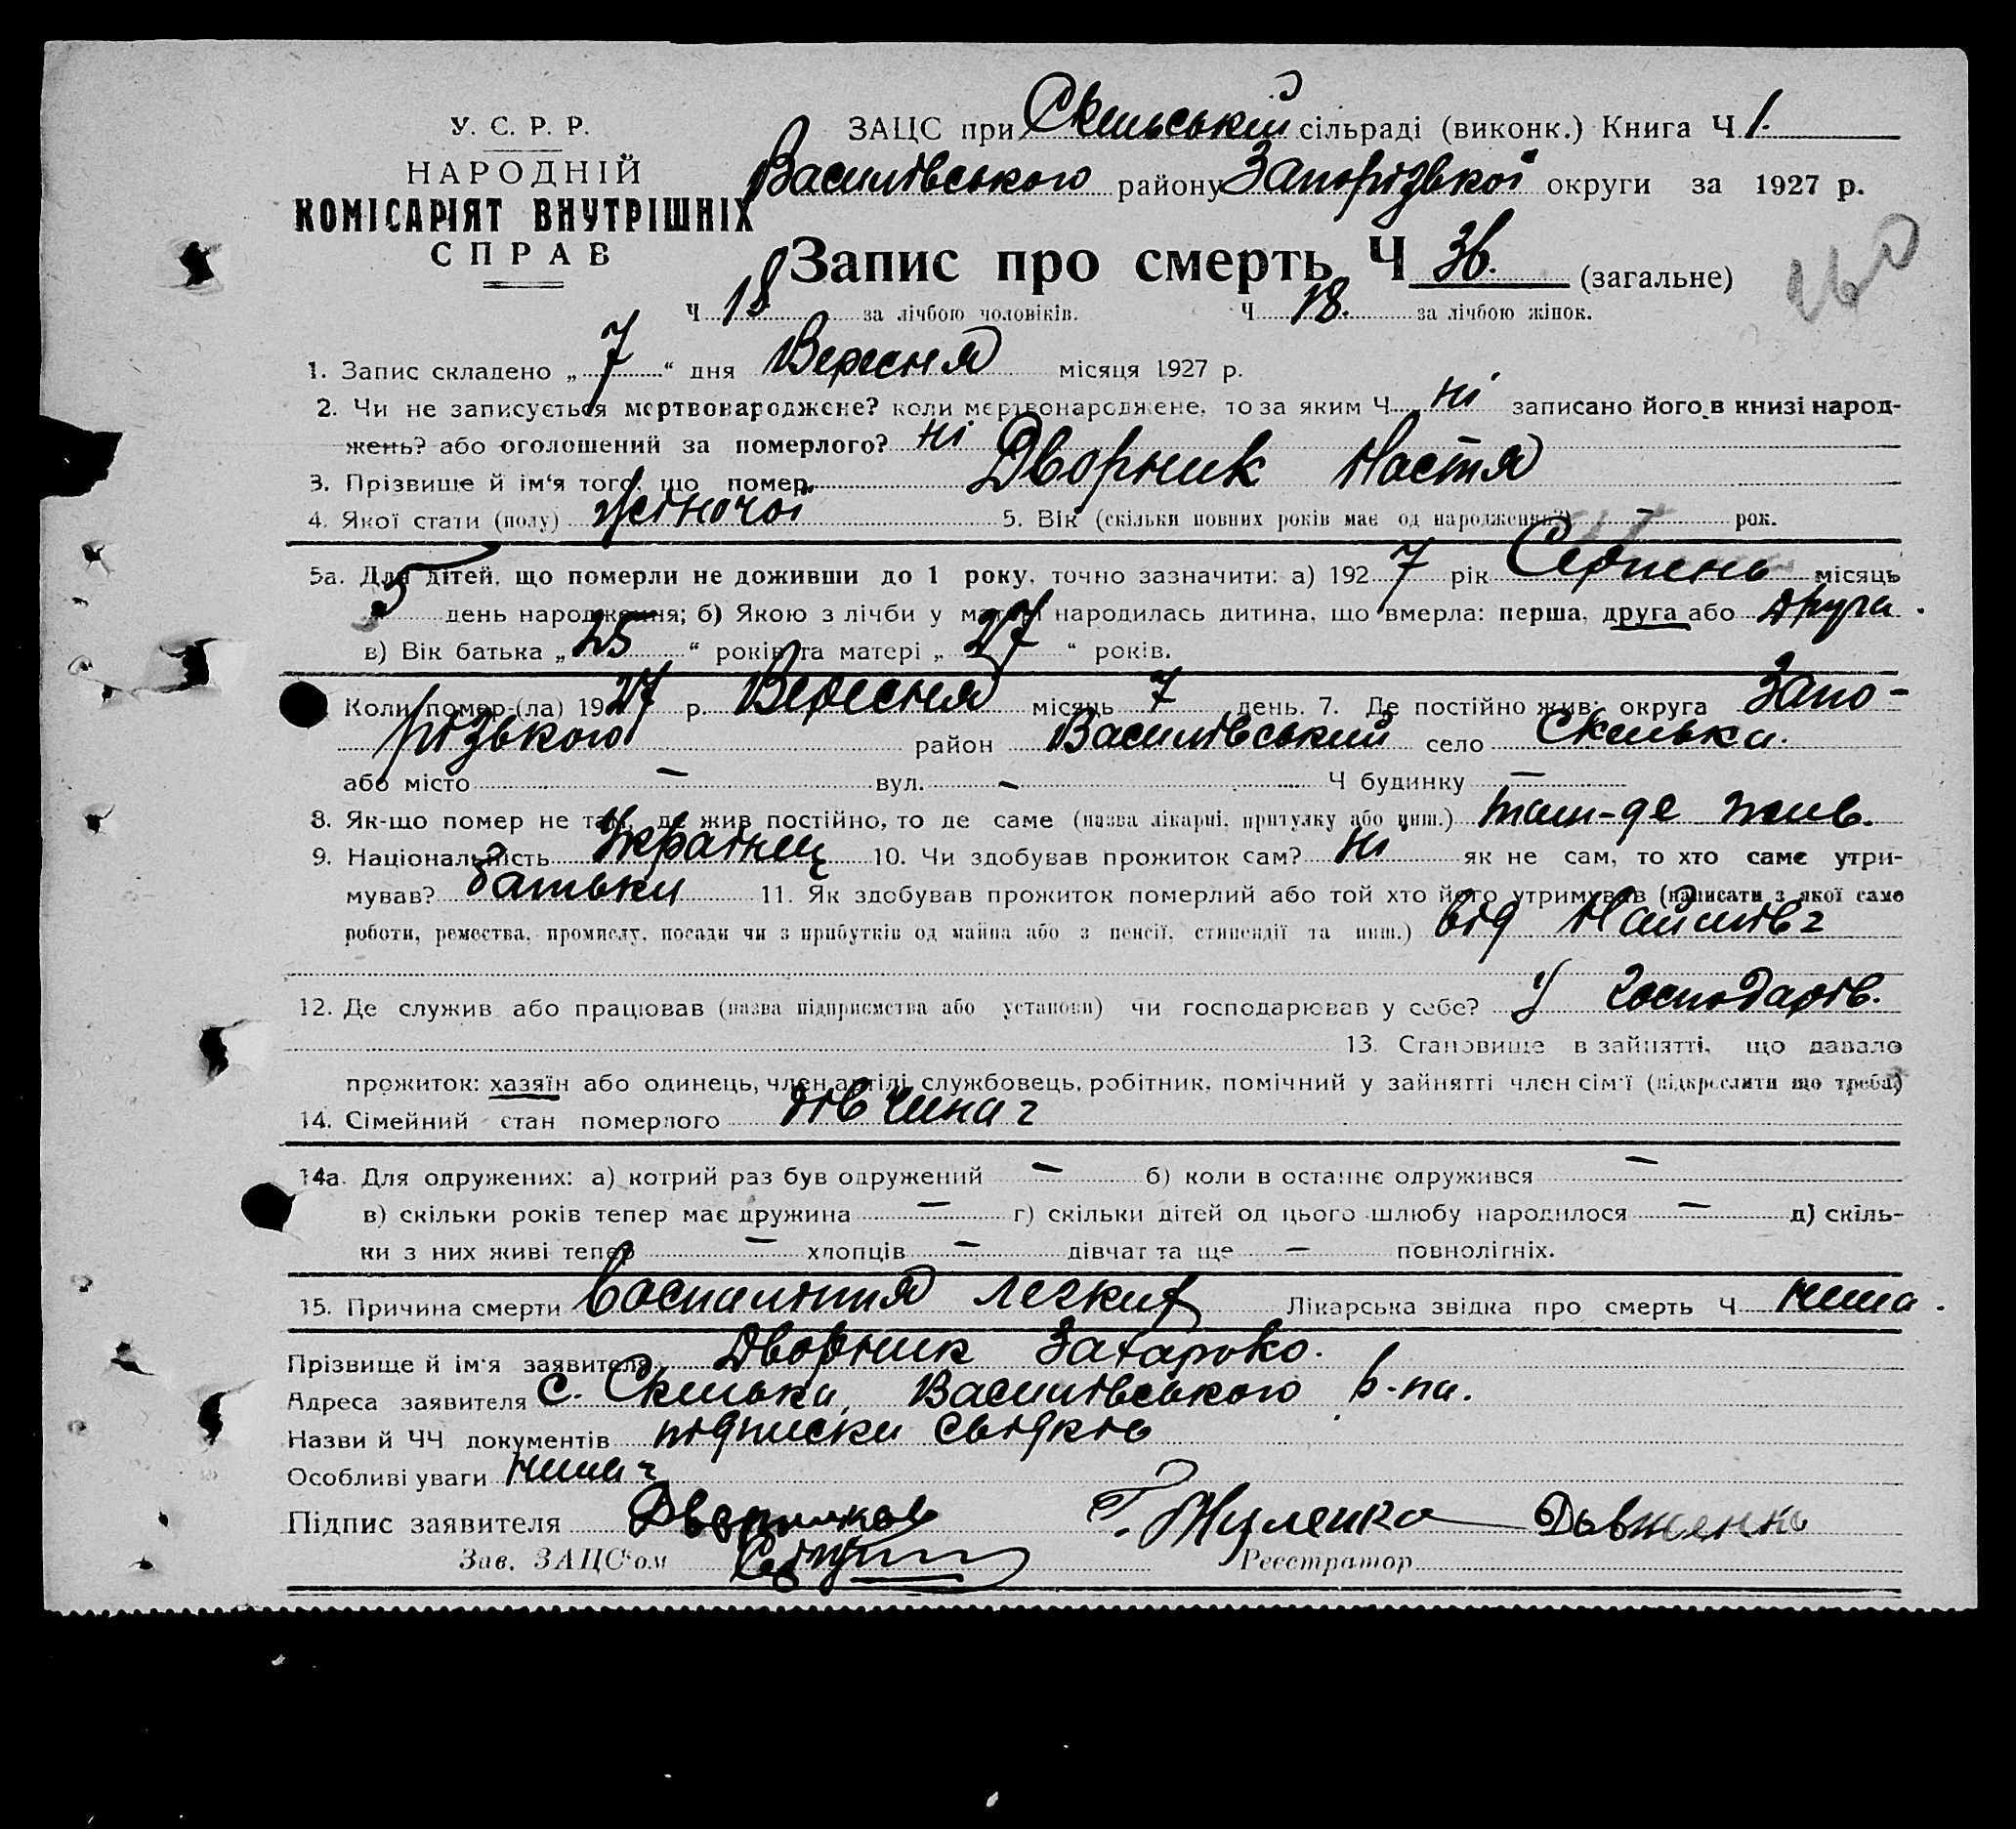 У. С. Р. Р.
НАРОДНІЙ
КОМІСАРІЯТ ВНУТРІШНІХ
СПРАВ
ЗАЦС при Скельській сільраді (виконк.) Книга Ч 1.
Василівського району Запорізької округи за 1927 р.
Запис про смерть Ч 36. (загальне)
Ч 18 за лічбою чоловіків. Ч 18. за лічбою жінок.
1. Запис складено „ 7 “ дня Вересня місяця 1927 р.
2. Чи не записується мертвонароджене? коли мертвонароджене, то за яким Ч ні записано його в книзі народ-
жень? або оголошений за померлого? ні
3. Прізвище й ім'я того, що помер Дворник Настя
4. Якої стати (полу) жіночої 5. Вік (скільки повних років має од народження?) – рок.
5а. Для дітей, що померли не доживши до 1 року, точно зазначити: а) 192 7 рік Серпень місяць
5 день народження; б) Якою з лічби у матері народилась дитина, що вмерла: перша, друга або друга.
в) Вік батька „ 25 “ років та матері „ 27 “ років.
Коли помер-(ла) 1927 р. Вересня місяць 7 день. 7. Де постійно жив: округа Запо-
різького район Василівський село Скелька.
або місто – вул. – Ч будинку –
8. Як-що помер не там, де жив постійно, то де саме (назва лікарні, притулку або инш.) там-де жив.
9. Національність Українец 10. Чи здобував прожиток сам? ні як не сам, то хто саме утри-
мував? батьки 11. Як здобував прожиток померлий або той хто його утримував (написати з якої само
роботи, ремества, промислу, посади чи з прибутків од майна або з пенсії, стипендії та инш.) від
12. Де служив або працював (назва підприємства або установи) чи господарював у себе? У господарів.
13. Становище в зайнятті, що давало
прожиток: хазяїн або одинець, член артілі, службовець, робітник, помічний у зайнятті член сім'ї (підкреслити що треба)
14. Сімейний стан померлого дівчина
14а. Для одружених: а) котрий раз був одружений – б) коли в останнє одружився –
в) скільки років тепер має дружина – г) скільки дітей од цього шлюбу народилося – д) скіль-
ки з них живі тепер – хлопців – дівчат та ще – повнолітніх.
15. Причина смерти воспалітня легких Лікарська звідка про смерть Ч нима.
Прізвище й ім'я заявителя Дворник
Адреса заявителя с. Скелька, Василівського р-на.
Назви й ЧЧ документів підписки свідків
Особливі уваги нима
Підпис заявителя Довженко
Зав. ЗАЦС'ом Реєстратор